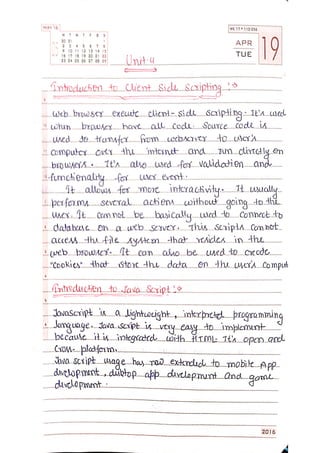 MAY 16
M T W T F S S
30 31 1
2 3 4 5 6 7 8
9 10 11 12 13 14 15
16 17 18 19 20 21 22
23 24 25 26 27 28 29
WK 17 • 110-256
APR
TUE
19
Unit 4
Introduction to Client Side Scripting :→
web browser execute client-side scripting. It's used
when browser have all code. Source code is
used to transfer from webserver to user's
computer over the internet and run directly on
browsers. It's also used for validation and
functionality for user event.
It allows for more interactivity. It usually
performs several actions without going to the
user. It can not be basically used to connect to
database on a web server. This scripts cannot
access the file system that resides in the
web browser. It can also be used to create
"cookies" that store the data on the user's comput
Introduction to Java Script :→
Javascript is a lightweight, interpreted programming
language. Java script is very easy to implement
because it is integrated with HTML. It's open and
Cross-platform.
Java script usage has now extended to mobile App
development, desktop app development and game
development.
2016